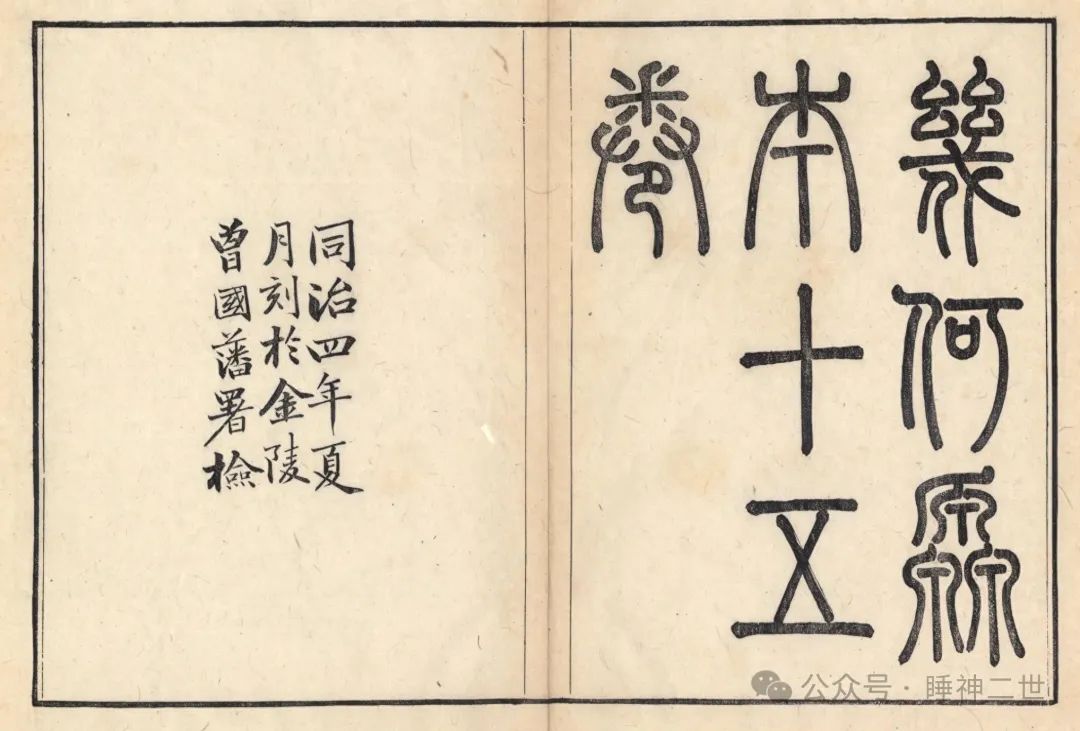 幾何原
本十五
卷
同治四年夏
月刻於金陵
曾國藩署檢
公众号 · 睡神二世